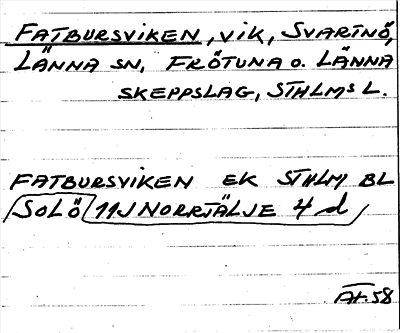 FATBURSVIKEN, VIK, SVARTNÖ,
LÄNNA SN, FRÖTUNA O. LÄNNA
SKEPPSLAG, STHLMS L.
FATBURSVIKEN EK STHLM BL
SOLÖ 11J NORRTÄLJE 4 d
58